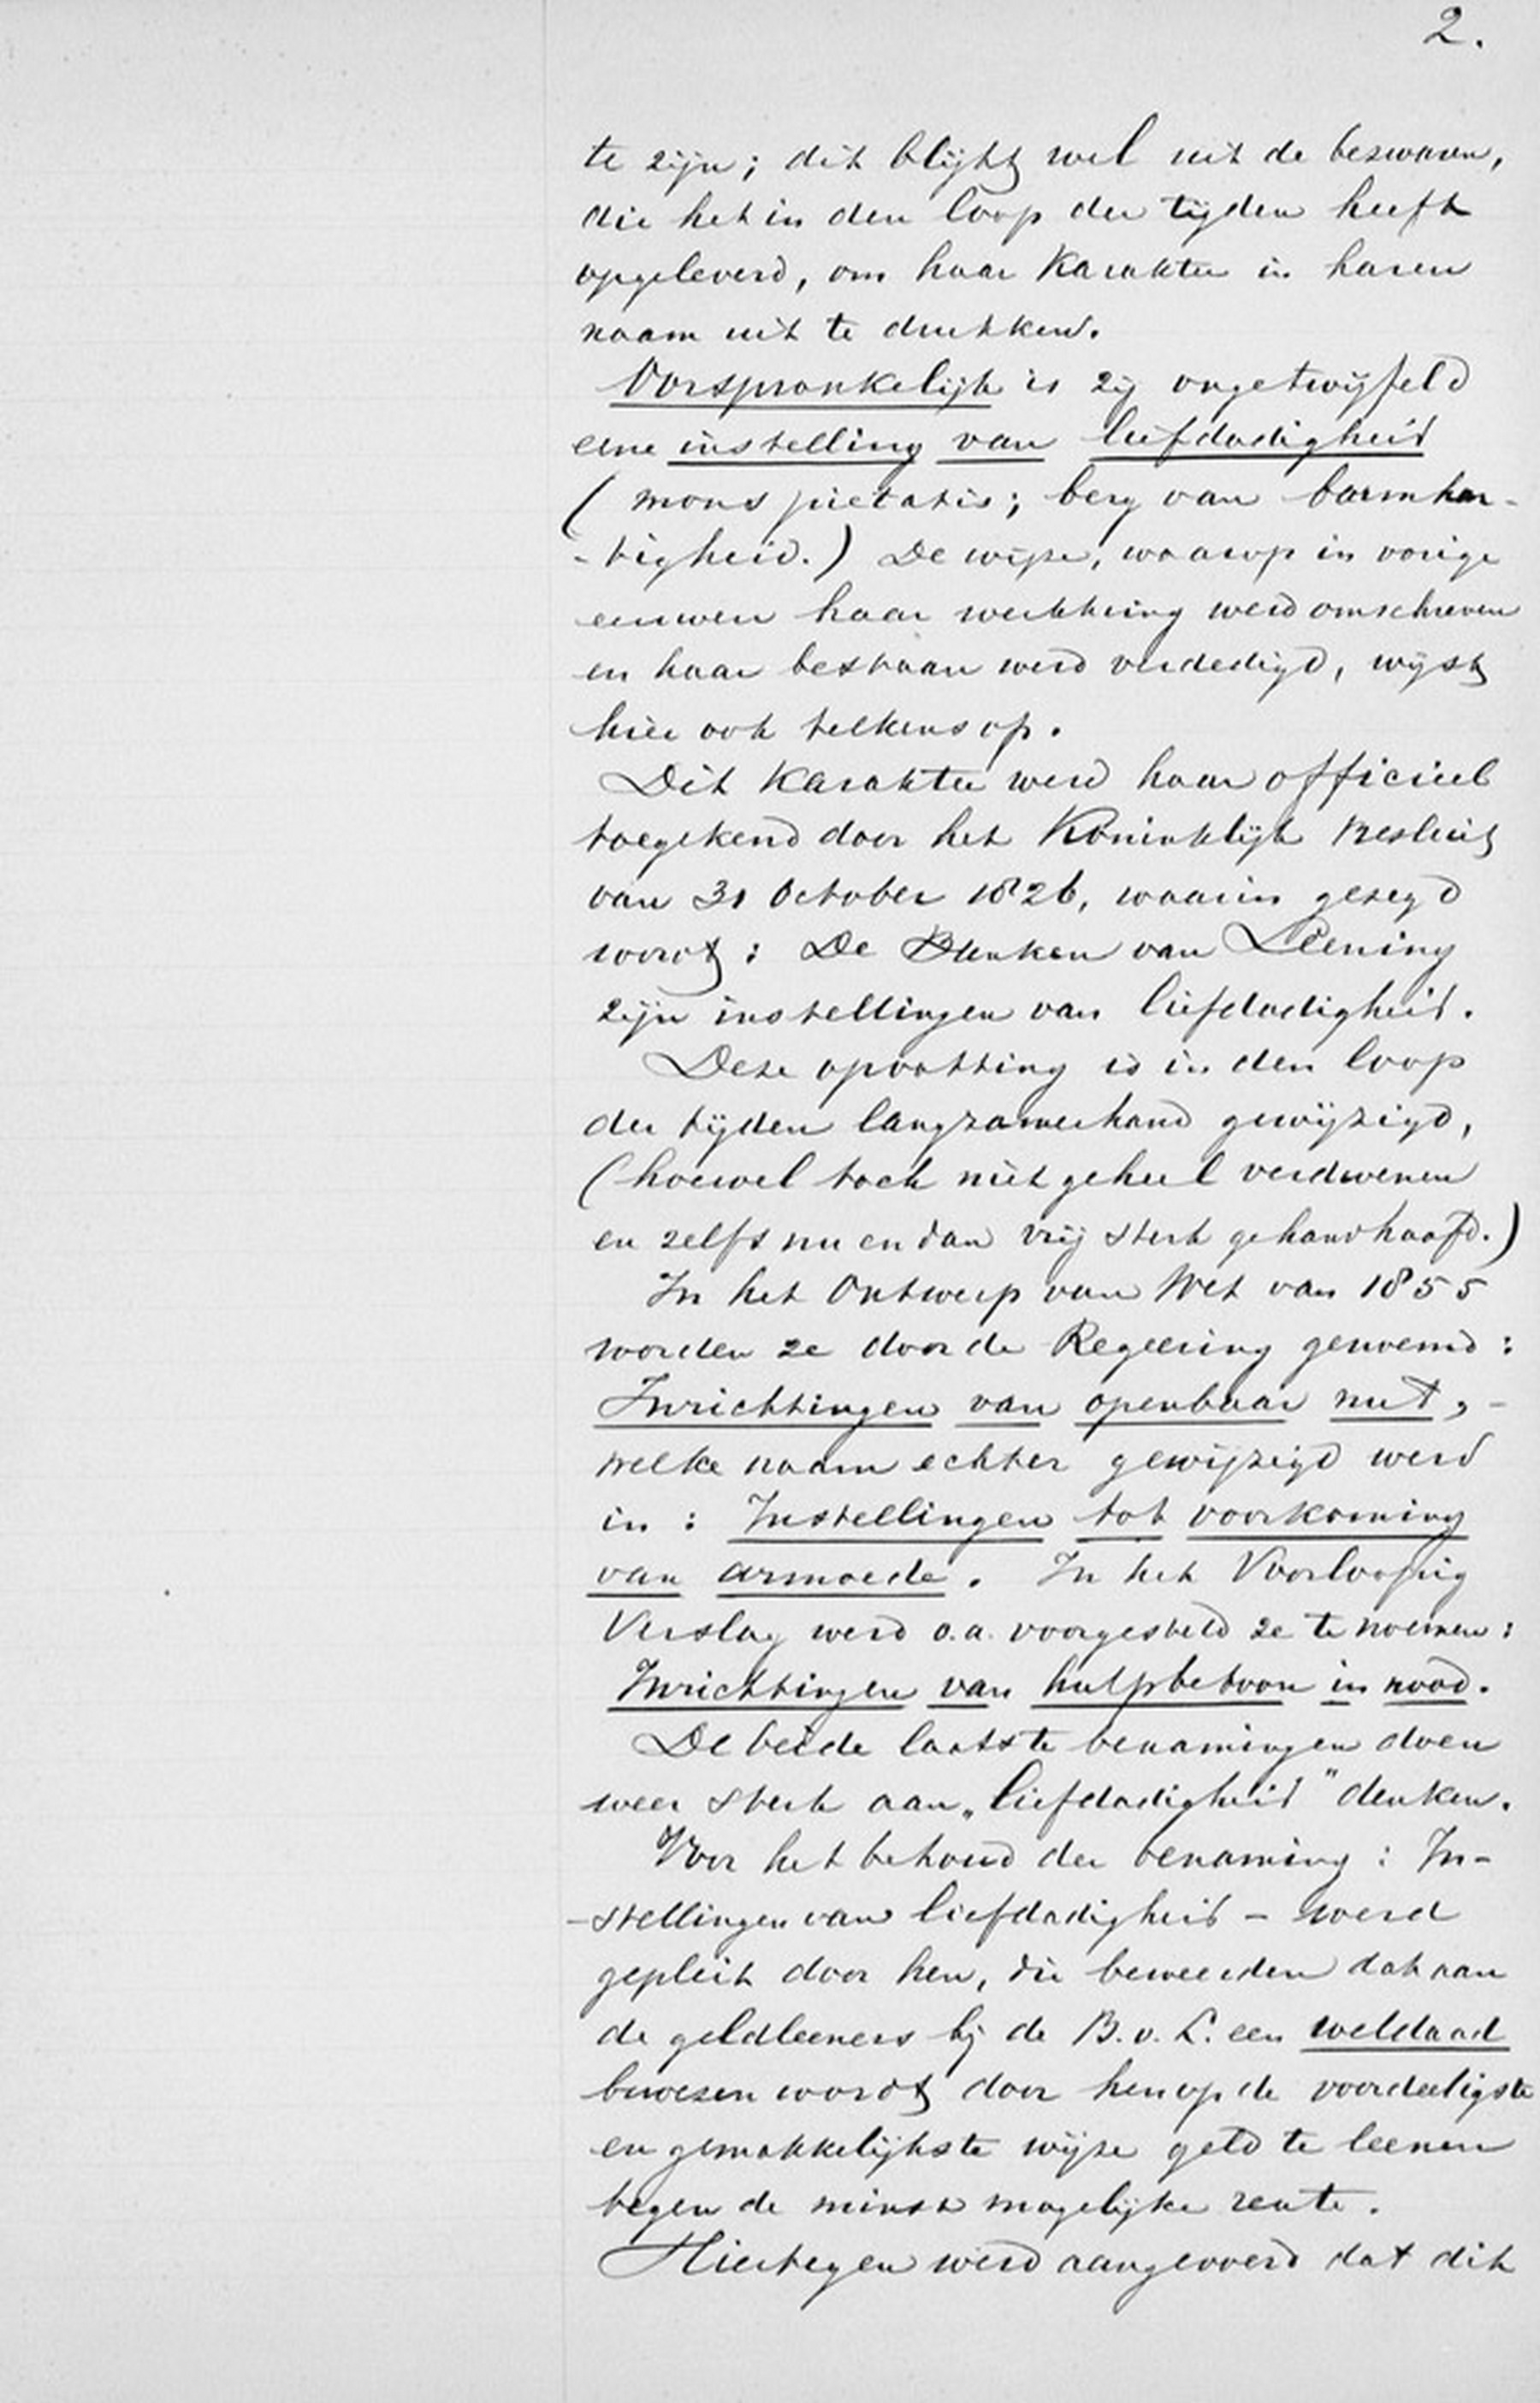 2.
te zijn; dit blijkt wel uit de bezwaren,
die het in den loop der tijden heeft
opgeleverd, om haar karakter in haren
naam uit te drukken.
Oorspronkelijk is zij ongetwijfeld
eene instelling van liefdadigheid
(mons pietatis; berg van barmhar-
-tigheid.) De wijze, waarop in vorige
eeuwen haar werkkring werd omschreven
en haar bestaan werd verdedigd, wijst
hier ook telkens op.
Dit karakter werd haar officieel
toegekend door het Koninklijk Besluit
van 31 October 1826, waarin gezegd
wordt: De Banken van Leening
zijn instellingen van liefdadigheid.
Deze opvatting is in den loop
der tijden langzamerhand gewijzigd,
(hoewel toch niet geheel verdwenen
en zelfs nu en dan vrij sterk gehandhaafd.)
In het Ontwerp van Wet van 1855
worden ze door de Regeering genoemd:
Inrichtingen van openbaar nut, -
welke naam echter gewijzigd werd
in: Instellingen tot voorkoming
van armoede. In het Voorloopig
Verslag werd o.a. voorgesteld ze te noemen:
Inrichtingen van hulpbetoon in nood.
De beide laatste benamingen doen
weer sterk aan „liefdadigheid" denken.
Voor het behoud der benaming: In-
-stellingen van liefdadigheid - werd
gepleit door hen, die beweerden dat aan
de geldleeners bij de B. v. L. een weldaad
bewezen wordt door hen op de voordeeligste
en gemakkelijkste wijze geld te leenen
tegen de minst mogelijke rente.
Hiertegen werd aangevoerd dat dit